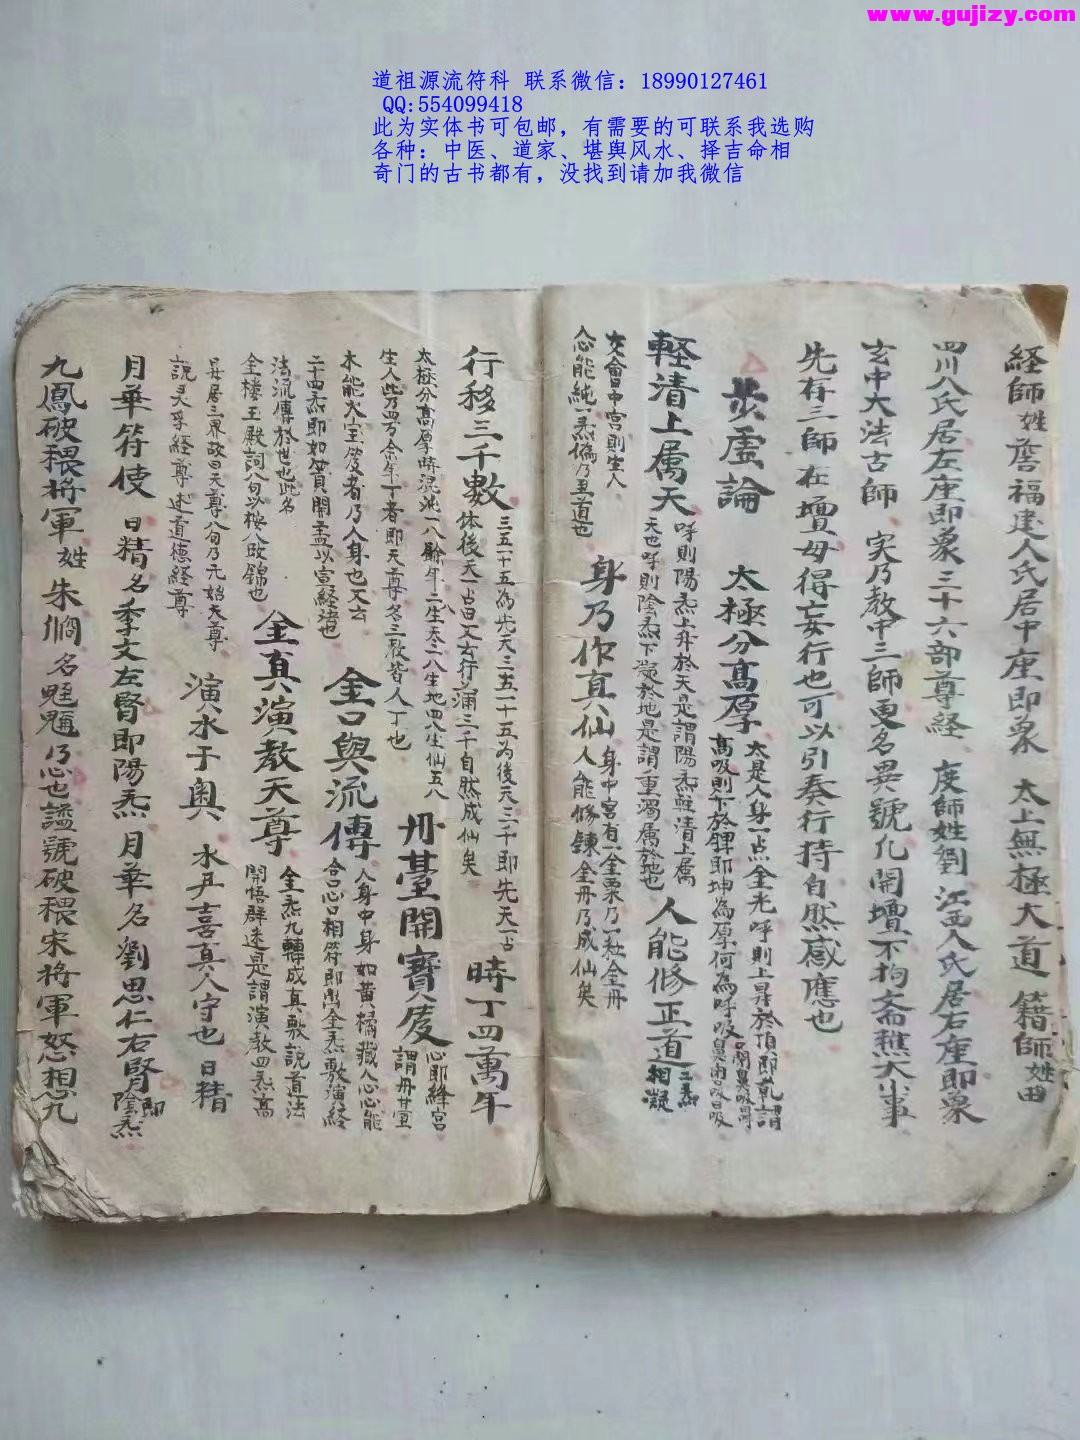 www.gujizy.com
道祖源流符科 联系微信：18990127461
QQ:554099418
此为实体书可包邮，有需要的可联系我选购
各种：中医、道家、堪舆风水、择吉命相
奇门的古书都有，没找到请加我微信
経師姓詹福建人氏居中座即象 太上無極大道 籍師姓田
四川人氏居左座即象三十六部尊経 度師姓劉江西人氏居右座即象
玄中大法古師 実乃教中三師更名異號化開壇不拘斋醮大小事
先存三師在壇毋得妄行也可以引奏行持自然感應也
步虛論 太極分髙厚 太是人身一点金光呼則上昇於頂即乾謂
髙吸則下於脾即坤為厚何為呼吸
軽清上属天 呼則陽炁上升於天是謂陽炁軽清上属
天也呼則陰炁下凝於地是謂重濁属於地也 人能修正道 二炁相凝
交會中宮則生人
心能純一炁偹乃丑道也 身乃作真仙 身中宮有一金粟乃一粒金丹
人能修錬金丹乃成仙矣
行移三千數 三五十五為先天三五一十五為後天三千即先天一占
体後天一占田又云行满三千自然成仙矣 時丁四萬年
太極分髙厚時混沌一八餘年二生太二八生地四八生仙五八
生人此乃四万余年丁者即天尊冬三教皆人丁也 丹䑓開寶笈 心即絳宮
謂丹䑓
木能火宝笈者乃人身也又云
二十四炁即如笈開盂以宣経法也 金口與流傳 人身中身如黃橘藏人心心能
合口心口相符即出金炁敷演経
法流傳於世也此名
金楼玉殿詞八句以桉八段錦也 金真演教天尊 金炁九轉成真敷説道法
開悟群迷是謂演教四炁髙
毋居三界故曰天尊八句乃元始天尊
説天孚経尊述道德経尊 演水于奥 水丹喜真人守也 日精
月華符使 日精名季文左腎即陽炁月華名劉思仁右腎即陰炁
九鳳破穢將軍姓朱 名 乃心也謐號破穢宋將軍怒想九